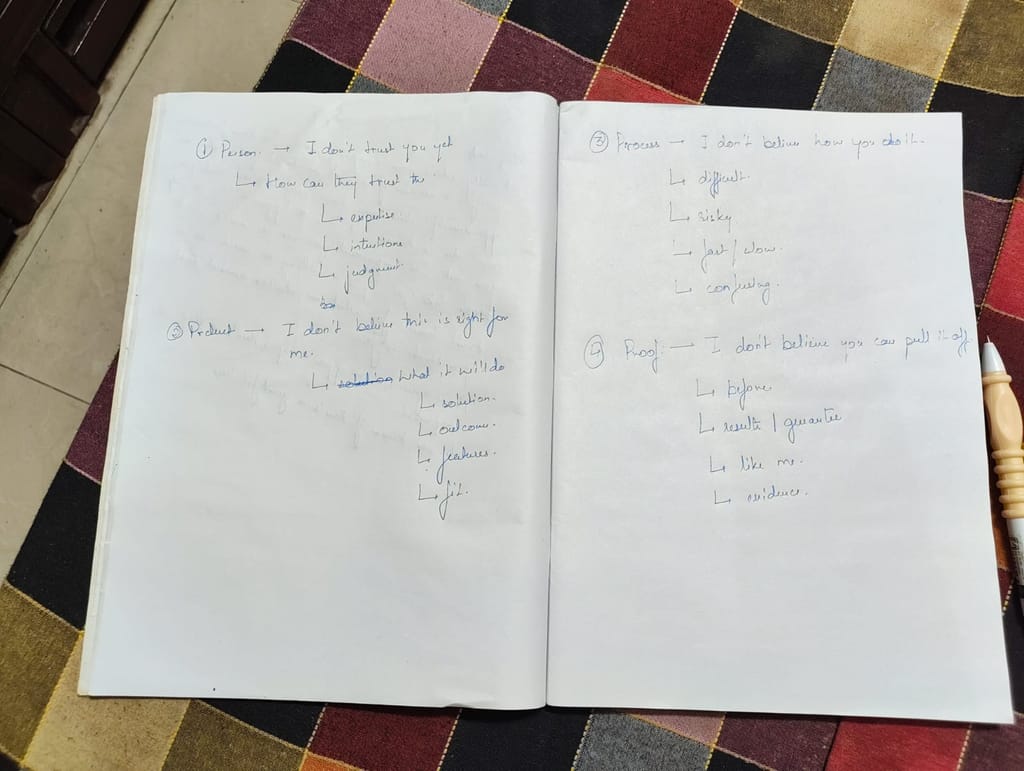 ① Person. → I don't trust you yet
↳ How can they trust the
↳ expertise
↳ intentions
↳ judgment
③ Product → I don't believe this is right for
me.
↳ what it will do
↳ solution.
↳ outcome.
↳ features.
↳ fit.
② Process → I don't believe how you do it.
↳ difficult.
↳ risky
→ fast / slow.
↳ confusing.
④ Proof. → I don't believe you can pull it off
↳ before.
↳ results / guarantee
↳ like me.
↳ evidence.